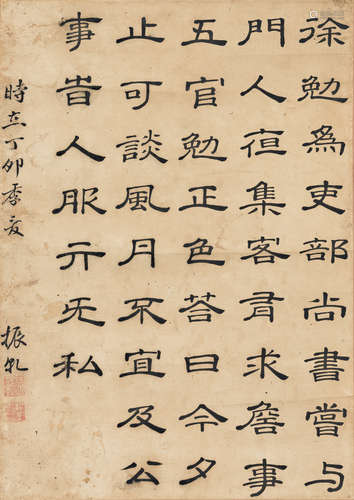 徐勉為吏部尚書嘗与
門人夜集客有求詹事
五官勉正色荅曰今夕
止可談風月不宜及公
事昔人服亓无私
時在丁卯季夏
振乳